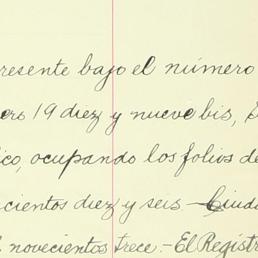 resente bajo el número
ero 19 diez y nueve bis,
ico, ocupando los folios de
cientos diez y seis - Ciuda
novecientos trece.- El Registr